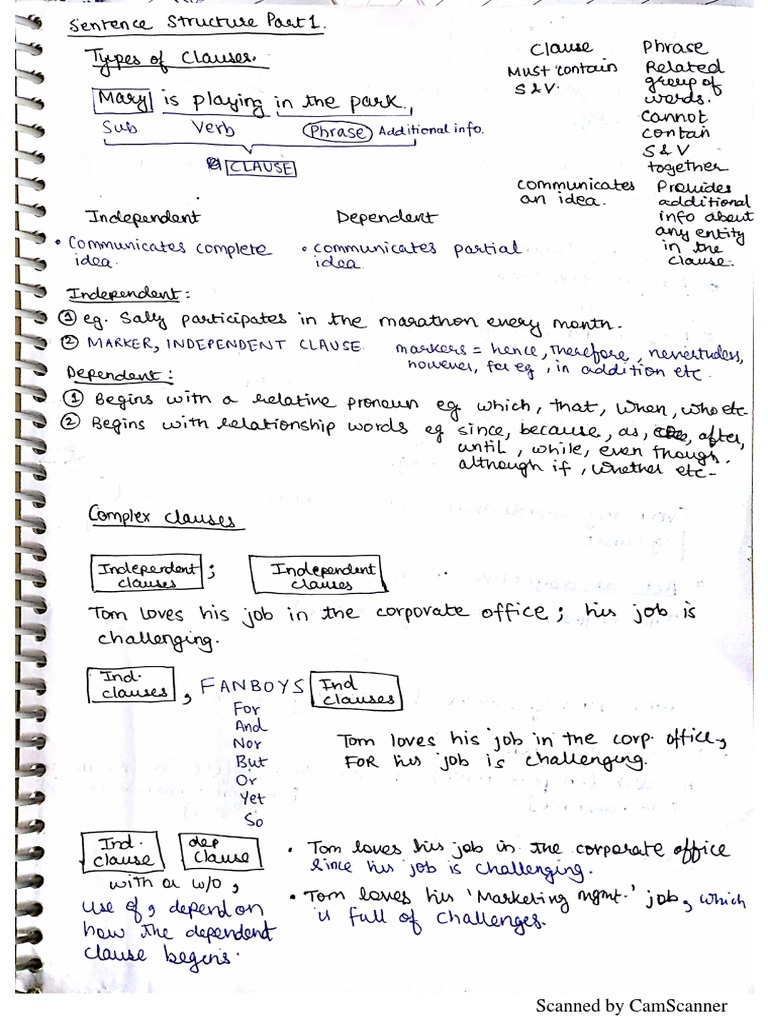 Sentence Structure Part 1.
Types of Clauses.
Mary is playing in the park.
Sub Verb Phrase Additional info.
CLAUSE
Clause
Must contain
S & V.
communicates
an idea.
Phrase
Related
group of
words.
Cannot
contan
S & V
together
Provides
additional
info about
any entity
in the
clause.
Independent Dependent
• Communicates complete
idea.
• communicates partial
idea.
Independent:
① eg. Sally participates in the marathon every month.
② MARKER, INDEPENDENT CLAUSE markers = hence, therefore, nevertheless,
however, for eg, in addition etc.
Dependent:
① Begins with a relative pronoun eg which, that, when, who etc
② Begins with relationship words eg since, because, as, after,
until, while, even though.
although if, whether etc-
Complex clauses
Independent
clauses
;
Independent
clauses
Tom loves his job in the corporate office; his job is
challenging.
Ind.
clauses
, FANBOYS
Ind
clauses
For
And
Nor
But
Or
Yet
So
Tom loves his job in the corp. office,
FOR his job is challenging.
Ind.
clause
dep
clause
with or w/o ,
use of , depend on
how the dependent
clause begins.
• Tom loves his job in the corporate office
since his job is challenging.
• Tom loves his 'Marketing mgmt.' job, which
is full of challenges.
Scanned by CamScanner